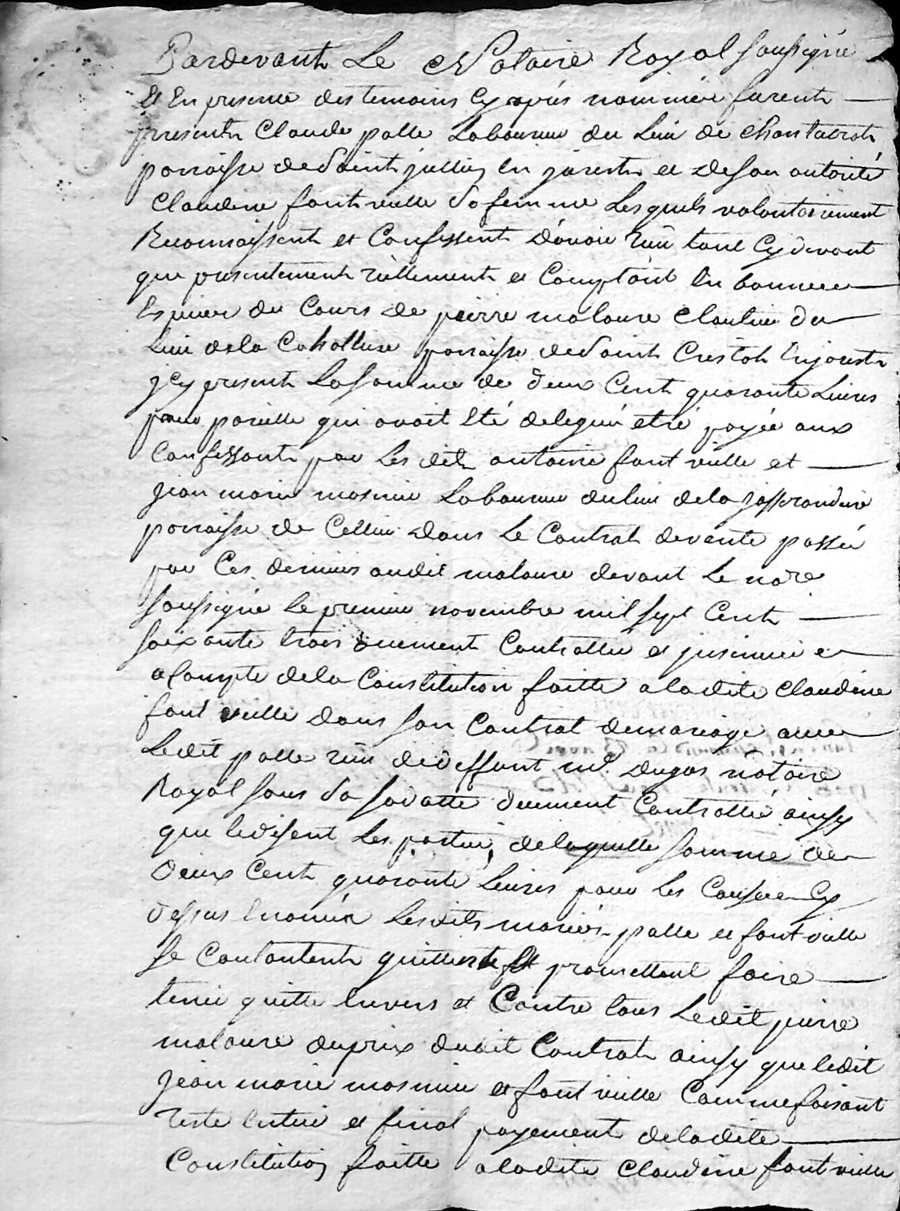 Pardevant Le Notaire Royal soussigné
Et En presence des temoins Cy après nommés furent
presents Claude palle Laboureur du Lieu de Chantaroit
parroisse de Saint jullien En jarests et de son autorité
Claudine fontvieille Sa femme Lesquels volontairement
Reconnaissent et Confessent d'avoir Reüu tant Cy devant
que presentement réellement et Comptant En bonnes
Especes du Cours de pierre malaure Cloutier du
Lieu de la parroisse de Saint Cristoh En jarests
jCy present La somme de deux Cent quarante Livres
pour pareille qui avoit Eté deleguée et payée aux
Confessants par Les dits antoine fontvieille et
jean marie masnier Laboureur du lieu de la
parroisse de Cellieu dans Le Contrat de vente passée
par Ces derniers audit malaure devant Le nore
soussigné le premier novembre mil sept Cent
soixante trois duement Controllée et jnsinuée et
a Compte de la Constitution faitte a ladite Claudine
font vieille dans son Contrat de mariage avec
Ledit palle reüu de deffunt me dugas notaire
Royal sous Sa datte duement Controllé ainsy
que le disent Les parties, de laquelle somme de
deux Cent quarante Livres pour Les Causes Cy
dessus Enoncées Lesdits mariés palle et fontvieille
se Contentent quittent et promettent faire
tenir quitte Envers et Contre tous Ledit pierre
malaure du prix dudit Contrat ainsy que ledit
jean marie masnier et font vieille Comme faisant
reste Entier et final payement de ladite
Constitution faitte a ladite Claudine fontvieille